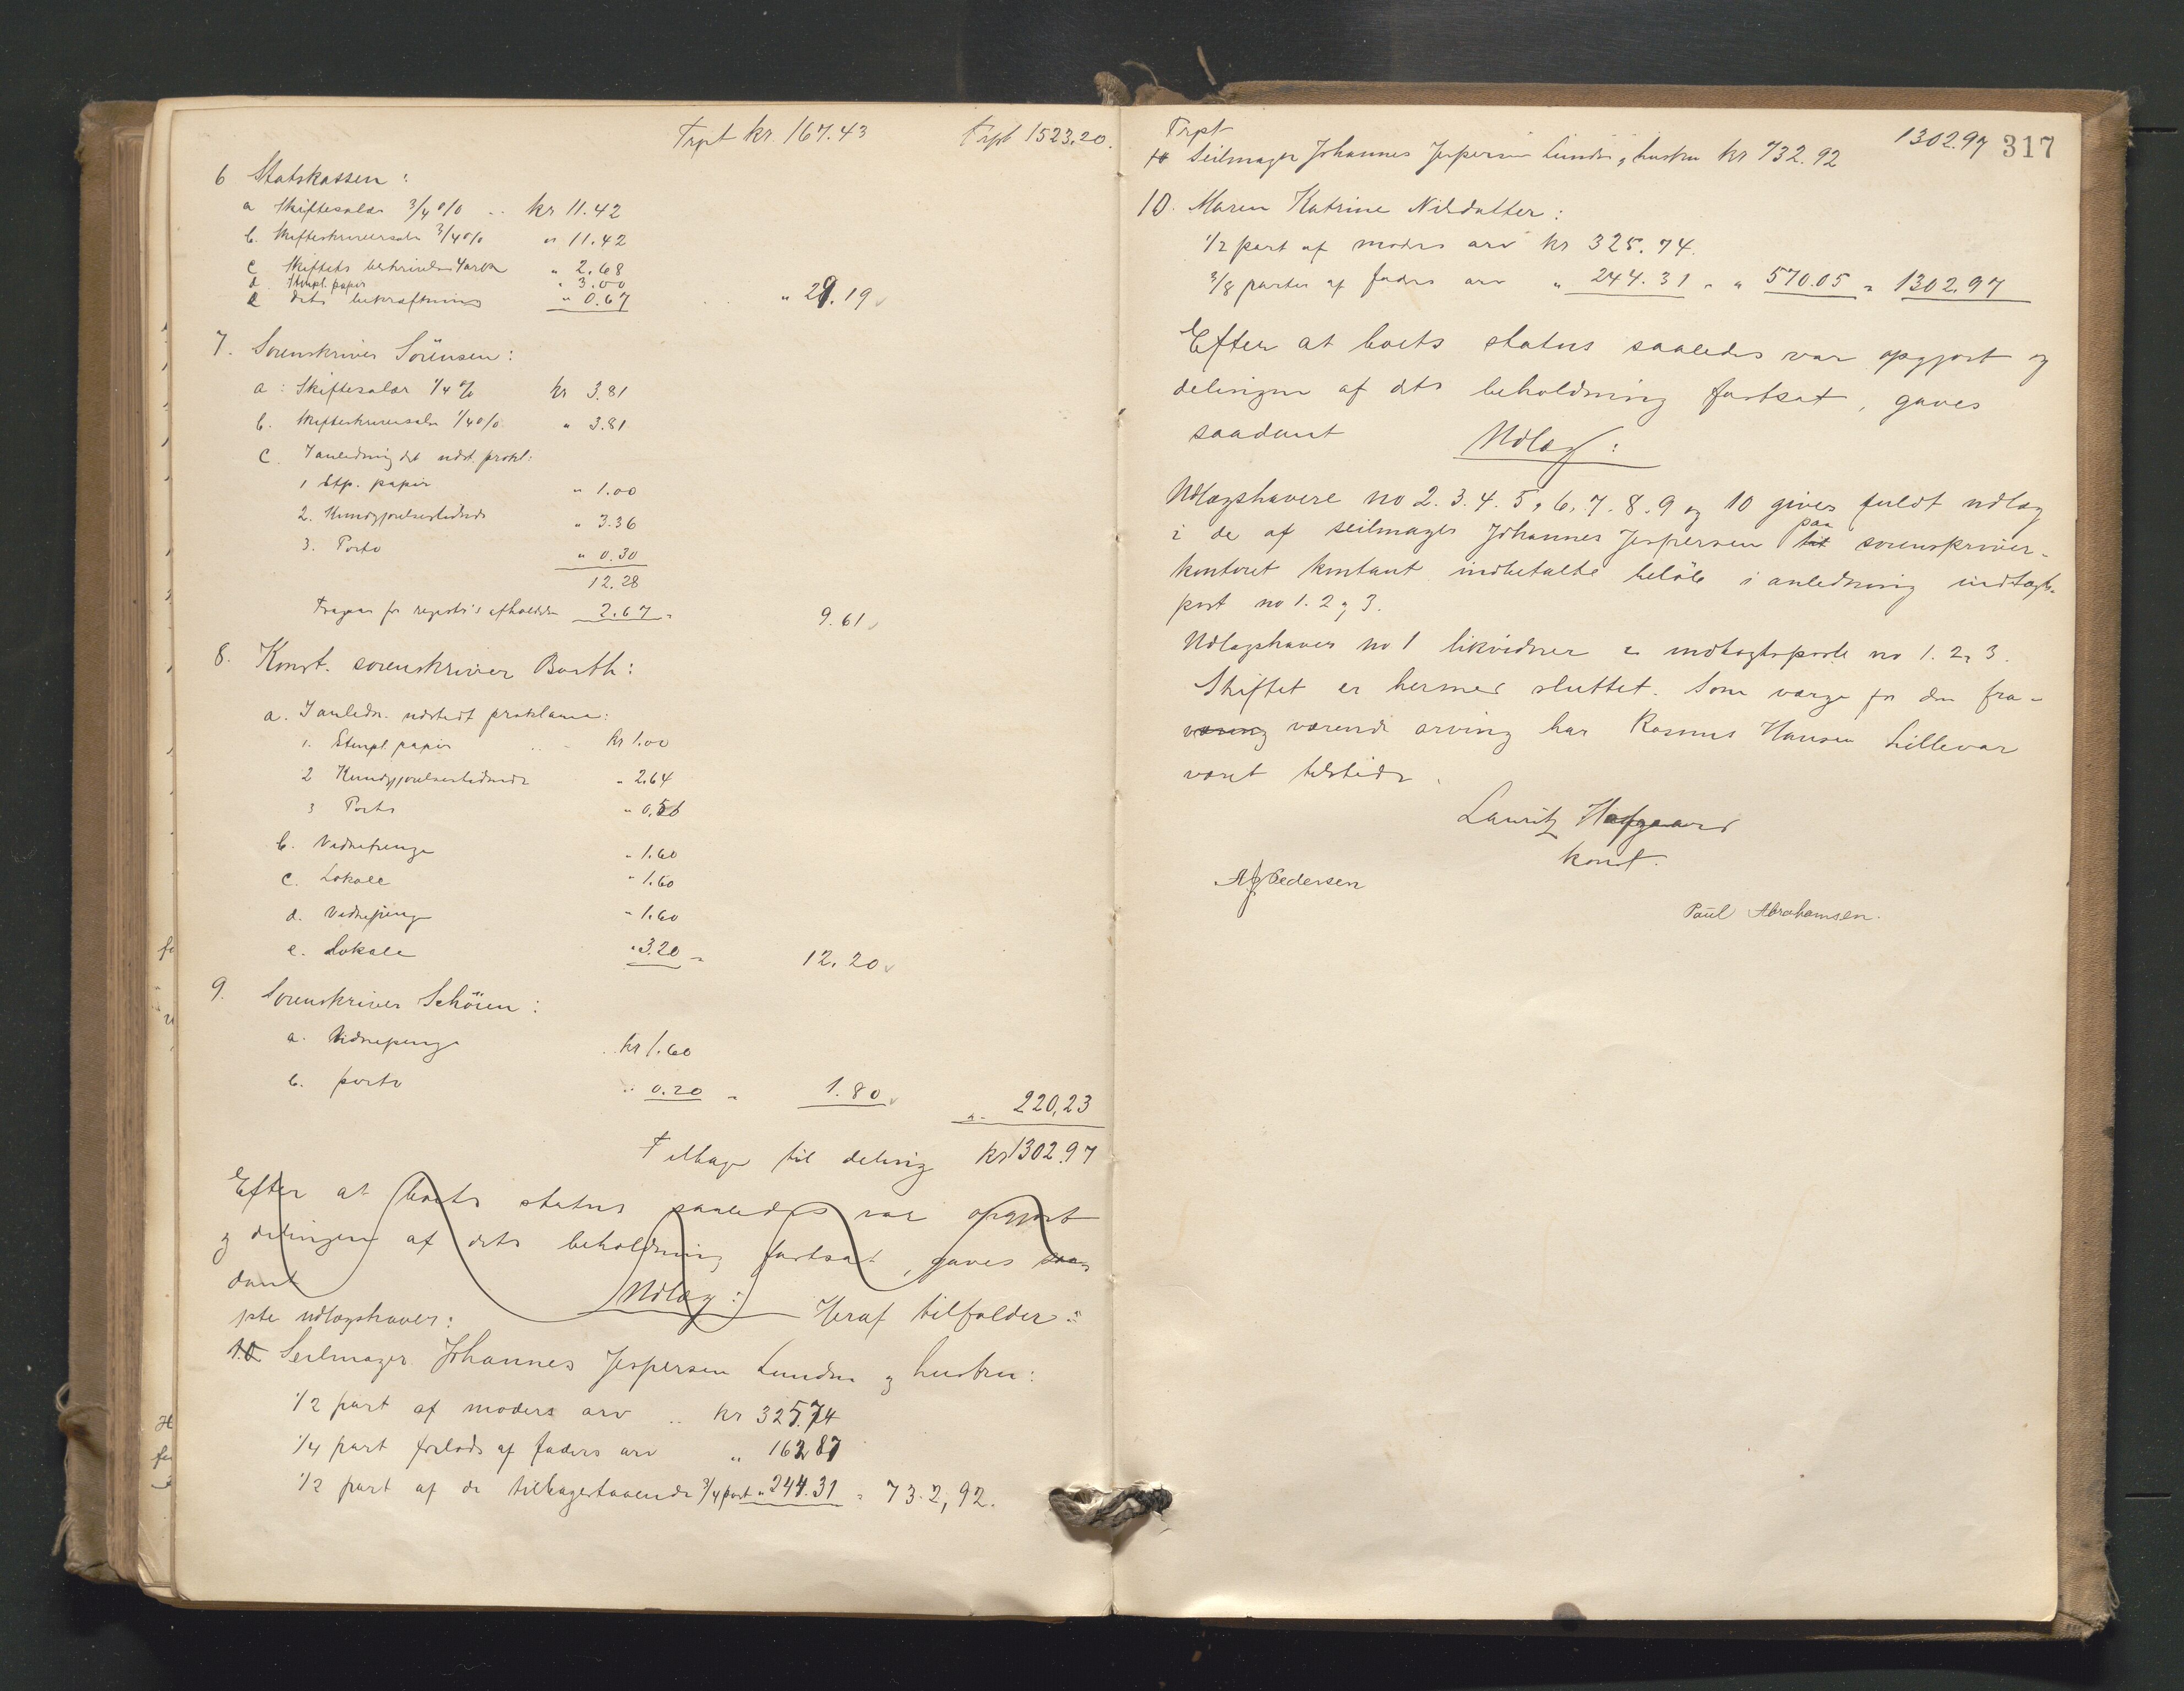 Trpt kr. 167.43 Trpt 1523.20.
6 Statskassen:
a Skiftesalær 3/4 % .. kr 11.42
b. Skifteskriversalær 3/4 % " 11.42
c Skiftets beskrivelse 4 ark " 2.68
d. Stempl. papir " 3.00
e dets bekræftning " 0.67 " 29.19
7. Sorenskriver Sörensen:
a: Skiftesalær 1/4 % kr 3.81
b. Skifteskriversalær 1/4 % " 3.81
c. I anledning det udst. prokl:
1 Stp. papir " 1.00
2. Kundgjørelsestidende " 3.36
3. Porto " 0.30
12.28
Fragaar for registr's afholdelse 2.67 = 9.61
8. Konst. sorenskriver Barth:
a. I anledn. udstedt proklama:
1. Stempl. papir .. kr 1.00
2 Kundgjørelsestidende " 2.64
3 Porto " 0.56
b. Vidnepenge " 1.60
c. Lokale " 1.60
d. Vidnepenge " 1.60
e. Lokale " 3.20 = 12.20
9. Sorenskriver Schöien:
a. Vidnepenge kr 1.60
b. porto " 0.20 = 1.80 " 220,23
Tilbage til deling kr 1302.97
Efter at boets status saaledes var opgjort
og delingen af dets beholdning fastsat, gaves saa-
dant Udlæg: Heraf tilfalder:
udlægshaver:
10 Seilmager Johannes Jespersen Lunden og hustru:
1/2 part af moders arv .. kr 325.74
1/4 part forlods af faders arv " 162.87
1/2 part af de tilbagestaaende 3/4 part " 244.31 = 732,92.
Trpt 1302.97 317
Seilmager Johannes Jespersen Lunden og hustru kr 732.92
10. Maren Katrine Nilsdatter:
1/2 part af moders arv kr 325.74.
3/8 parter af faders arv " 244.31 = " 570.05 = 1302.97
Efter at boets status saaledes var opgjort og
delingen af dets beholdning fastsat, gaves
saadant Udlæg:
Udlægshavere no 2. 3. 4. 5, 6, 7. 8. 9 og 10 gives fuldt udlæg
i de af seilmager Johannes Jespersen til paa sorenskriver-
kontoret kontant indbetalte beløb i anledning indtægts-
post no 1. 2 og 3.
Udlægshaver no 1 likviderer indtægtsposte no 1. 2, 3.
Skiftet er hermed sluttet. Som værge for den fra-
værende arving har Rasmus Hansen Lillevar
været tilstede.
Lauritz Hafgaard
konst.
Pedersen
Paul Abrahamsen.